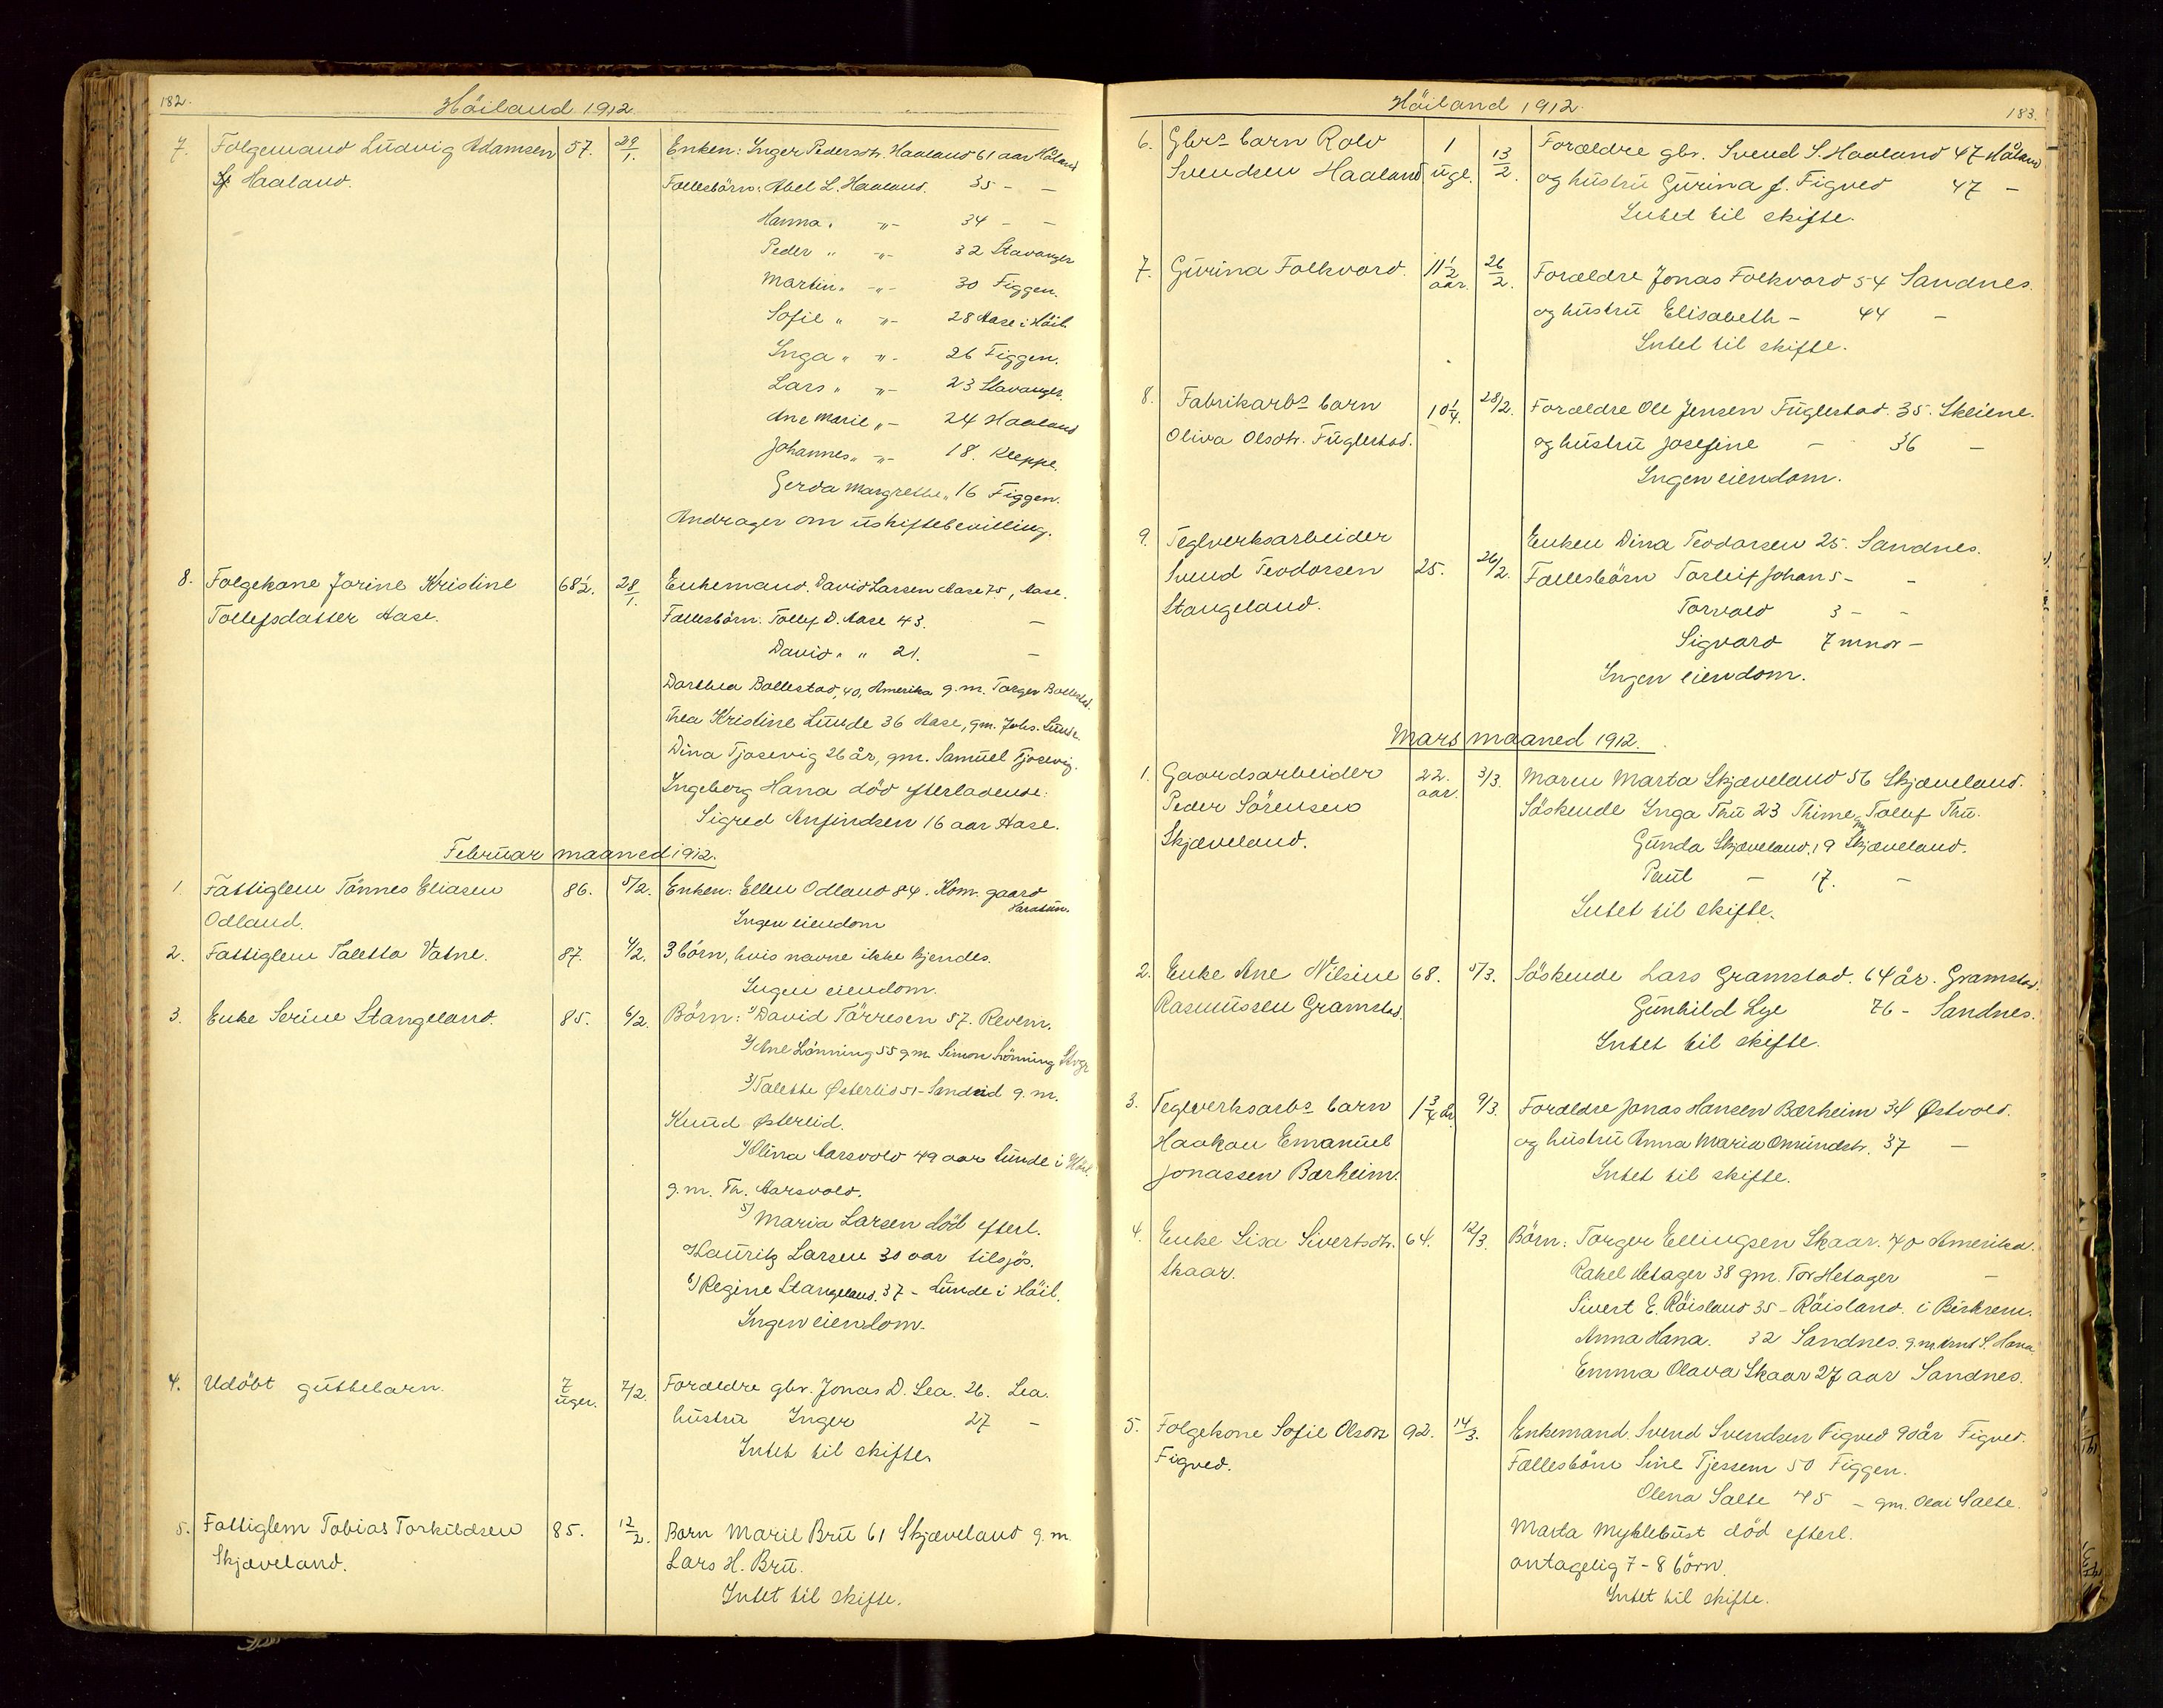 182.
Höiland 1912.
7. Folgemand Ludvig Adamsen 57. 29/1. Enken: Inger Pedersdtr. Haaland 61 aar Håland
Haaland. Fællesbörn: Abel L. Haaland. 35 - -
Hanna. -"- 34 - -
Peder " -"- 32 Stavanger
Martin. -"- 30 Figgen.
Sofie " -"- 28 Aase i Höil.
Inga " -"- 26 Figgen.
Lars " -"- 23 Stavanger.
Ane Marie "- 24 Haaland
Johannes " -"- 18. Kleppe.
Gerda Margrethe " 16 Figgen.
Andrager om uskiftebevilling.
8. Folgekone Jorine Kristine 68½. 28/1. Enkemand. David Larsen Aase 75, Aase.
Tollefsdatter Aase. Fællesbörn. Tollef D. Aase 43. -
David " " 21. -
Dorthea Bollestad, 40, Amerika g.m. Torger Bollestad.
Thea Kristine Lunde 36 Aase, gm. Johs. Lunde.
Dina Tjosevig 26 år, gm. Samuel Tjosevig.
Ingeborg Hana död efterladende:
Sigred Anfindsen 16 aar Aase.
Februar maaned 1912.
1. Fattiglem Tönnes Eliasen 86. 5/2. Enken: Ellen Odland 84. Kom. gaard
Odland. Ingen eiendom
2. Fattiglem Taletta Vatne. 87. 4/2. 3 börn, hvis navne ikke kjendes.
Ingen eiendom.
3. Enke Serine Stangeland. 85. 6/2. Börn: 1) David Törresen 57. Revem.
2) Ane Lönning 55 gm. Simon Lönning Stvgr
3) Talette Østerlid 51 - Sandeid g.m.
Knud Østerlid.
4) Olina Aarsvold 49 aar Lunde i Höil.
g.m. Th. Aarsvold.
5) Maria Larsen död efterl.
Lauritz Larsen 30 aar tilsjös.
6) Regine Stangeland. 37 - Lunde i Höil.
Ingen eiendom.
4. Udöbt guttebarn. 7 uger. 7/2. Forældre gbr. Jonas D. Lea. 26. Lea.
hustru Inger 27 -
Intet til skifte.
5. Fattiglem Tobias Torkildsen 85. 12/2. Barn Marie Bru 61 Skjæveland g.m.
Skjæveland. Lars H. Bru.
Intet til skifte.
Höiland 1912.
183.
6. Gbrs barn Rolv 1 13/2. Forældre gbr. Svend S. Haaland 47 Håland
Svendsen Haaland uge. og hustru Gurina f. Figved 47 -
Intet til skifte.
7. Gurina Folkvord. 11½ aar. 26/2. Forældre Jonas Folkvord 54 Sandnes.
og hustru Elisabeth - 44 -
Intet til skifte.
8. Fabrikarbs barn 10¼. 28/2. Forældre Ole Jensen Fuglestad. 35. Skeiene.
Oliva Olsdtr. Fuglestad. og hustru Josefine - 36 -
Ingen eiendom.
9. Teglverksarbeider Enken Dina Teodorsen 25. Sandnes.
Svend Teodorsen 25. 26/2. Fællesbörn Torleif Johan 5 - -
Stangeland. Torvald 3 - -
Sigvard 7 mndr -
Ingen eiendom.
Mars maaned 1912.
1. Gaardsarbeider 22. aar. 3/3. Moren Marta Skjæveland 56 Skjæveland.
Peder Sörensen Söskende Inga Thu 23 Thime gm. Tollef Thu.
Skjæveland. Gunda Skjæveland, 19 Skjæveland.
Paul - 17. -
Intet til skifte.
2. Enke Ane Nilsine 68. 5/3. Söskende Lars Gramstad. 64 år. Gramstad.
Rasmussen Gramstad. Gunhild Lye 76 - Sandnes.
Intet til skifte.
3. Teglverksarbs barn 1¾ år. 9/3. Forældre Jonas Hansen Bærheim 34 Østvold.
Haakon Emanuel og hustru Anna Maria Omundstr. 37 -
Jonassen Bærheim. Intet til skifte.
4. Enke Lisa Sivertsdtr. 64. 12/3. Börn: Torger Ellingsen Skaar. 40 Amerika.
Skaar. Rakel Hetager 38 gm. Tor Hetager -
Sivert E. Röisland 35 - Röisland. i Birkrem.
Anna Hana. 32 Sandnes. g.m. Arnt S. Hana
Emma Olava Skaar 27 aar Sandnes.
5. Folgekone Sofie Olsdtr 92. 14/3. Enkemand. Svend Svendsen Figved 90 år Figved.
Figved. Fællesbörn Sine Tjessem 50 Figgen.
Olena Salte 45 - gm. Olai Salte.
Marta Myklebust död efterl.
antagelig 7 - 8 börn.
Intet til skifte.